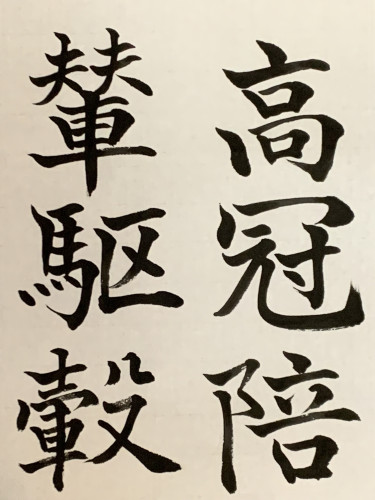 高冠陪
輦駆轂